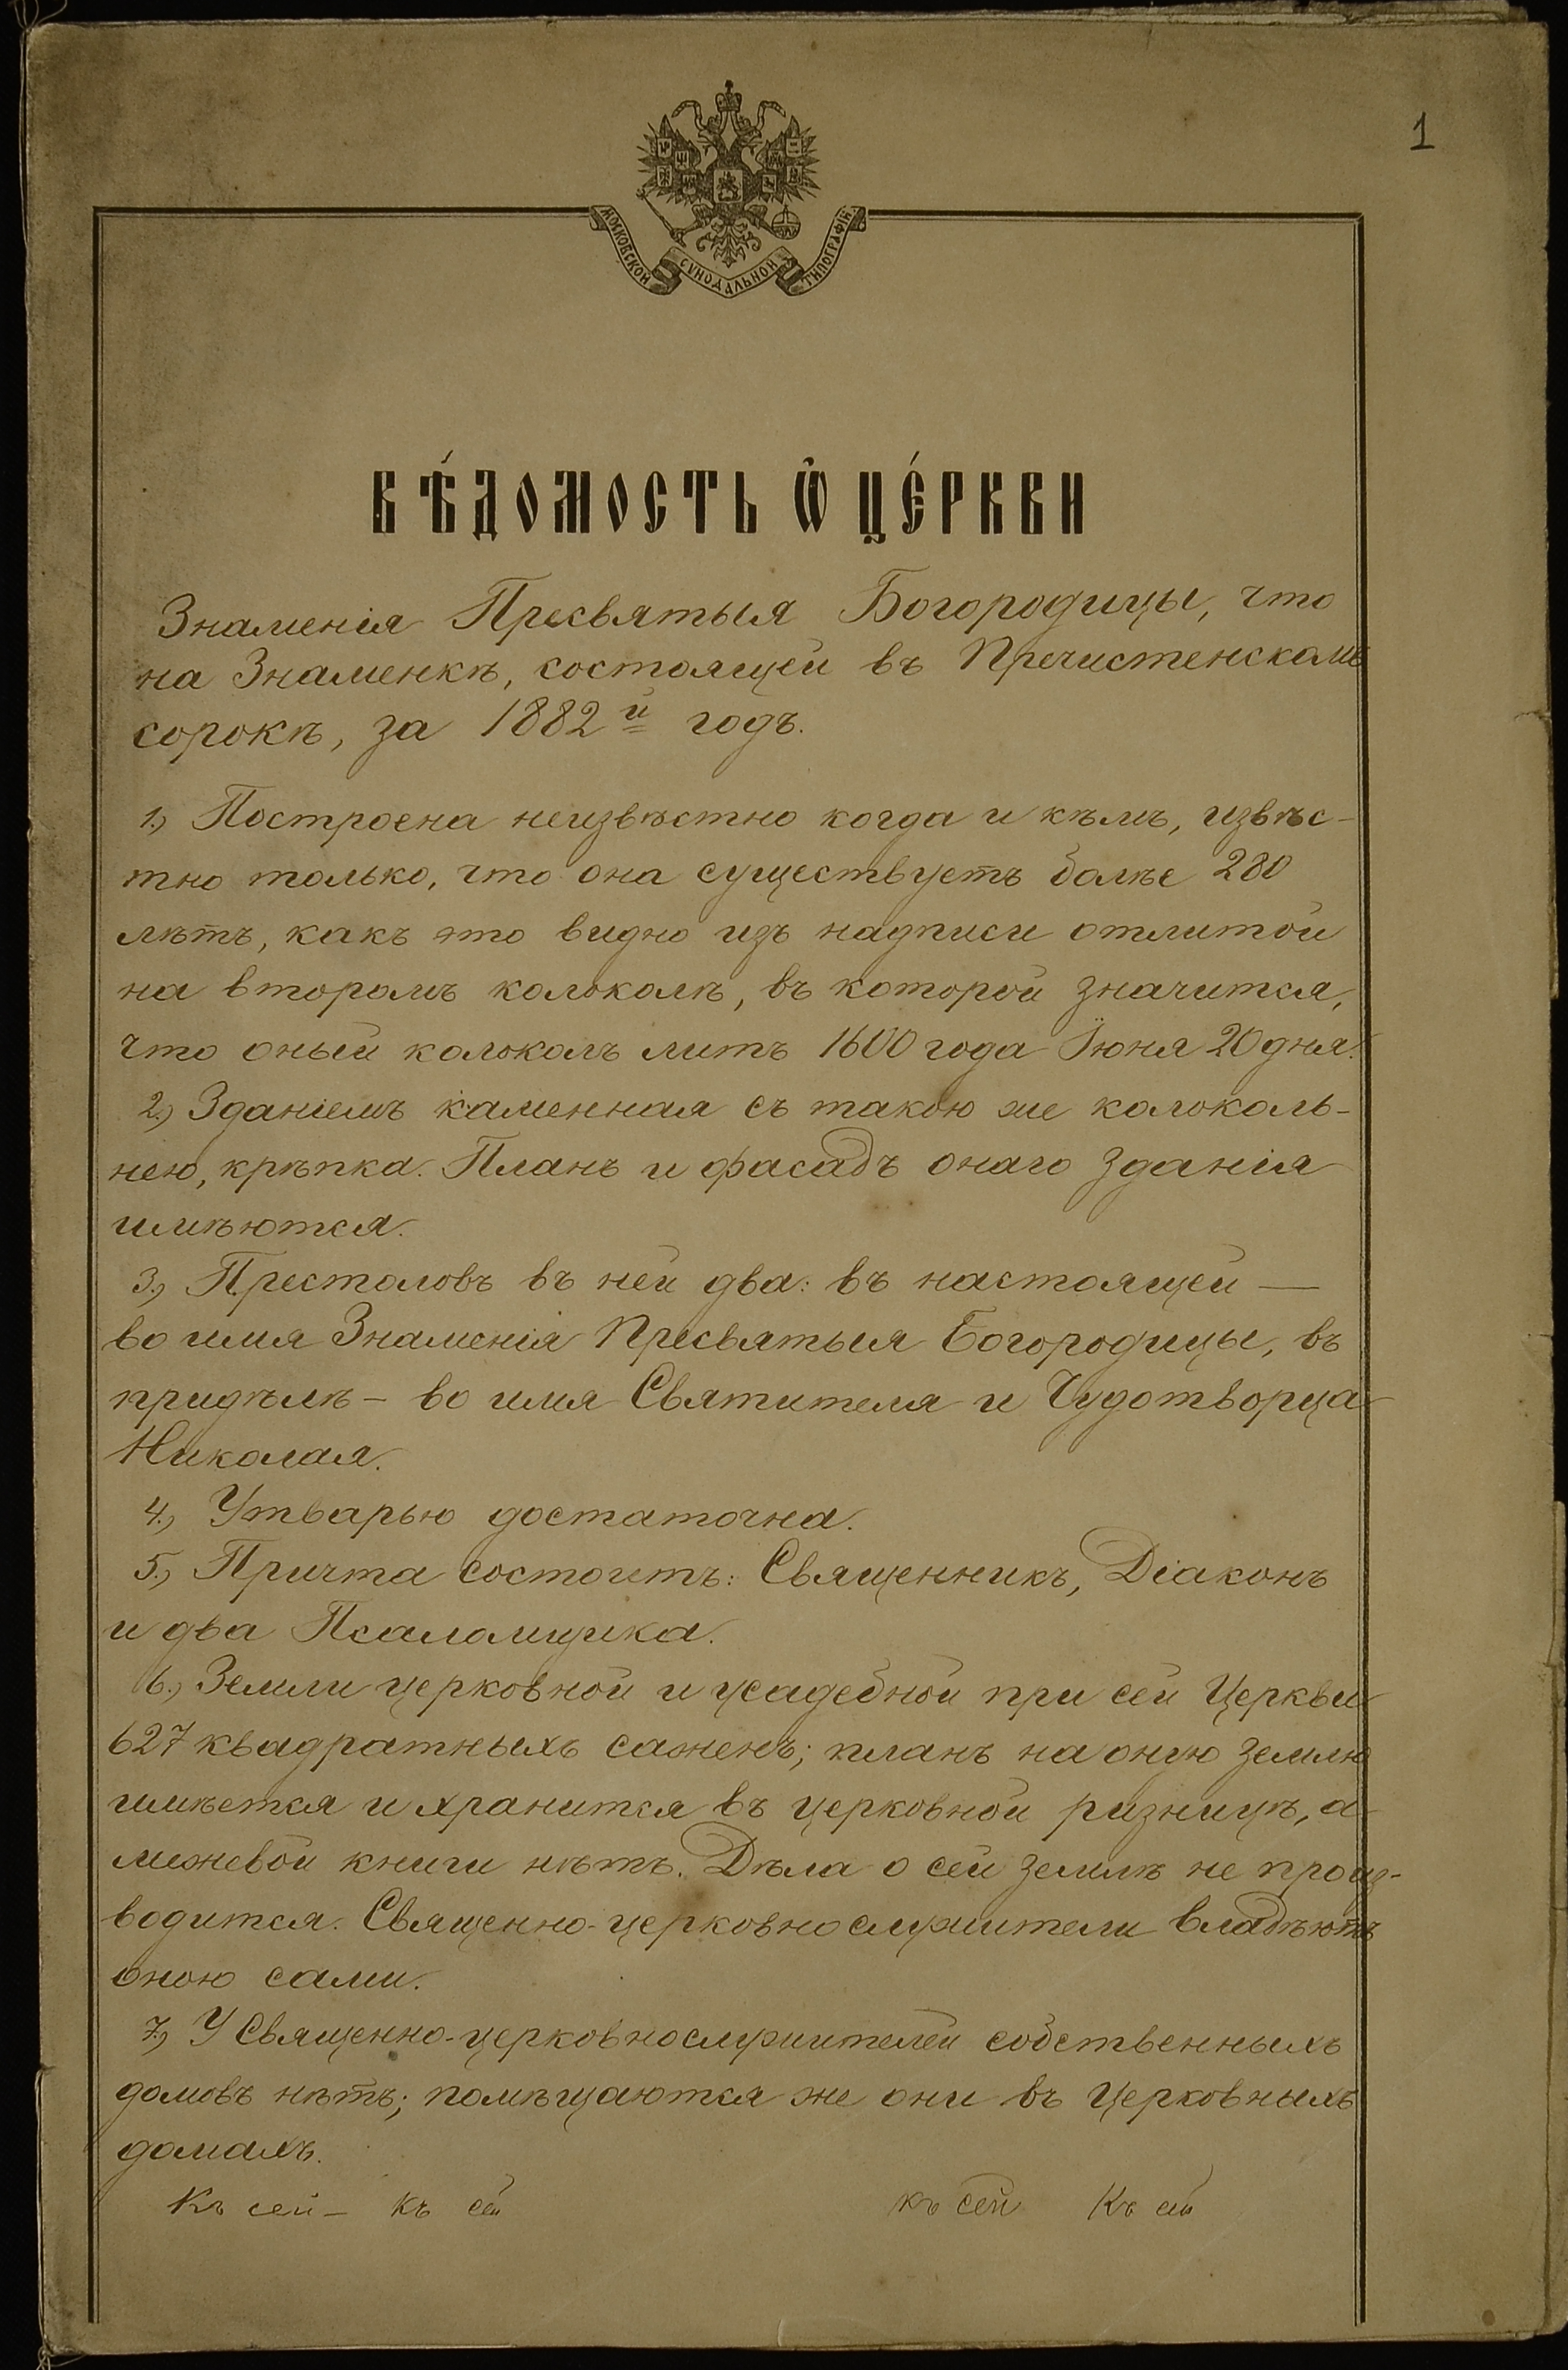 1
МОСКОВСКОЙ СѴНОДАЛЬНОЙ ТИПОГРАФІИ
ВѢ́ДОМОСТЬ Ѿ ЦЕ́РКВИ
Знаменія Пресвятыя Богородицы, что
на Знаменкѣ, состоящей въ Пречистенскомъ
сорокѣ, за 1882й годъ.
1.) Построена неизвѣстно когда и кѣмъ, извѣс-
тно только, что она существуетъ болѣе 280
лѣтъ, какъ это видно изъ надписи отлитой
на второмъ колоколѣ, въ которой значится,
что оный колоколъ литъ 1600 года Іюня 20 дня.
2.) Зданіемъ каменная съ такою же колоколь-
нею, крѣпка. Планъ и фасадъ онаго зданія
имѣются.
3.) Престоловъ въ ней два: въ настоящей —
во имя Знаменія Пресвятыя Богородицы, въ
придѣлѣ – во имя Святителя и Чудотворца
Николая.
4.) Утварью достаточна.
5.) Причта состоитъ: Священникъ, Діаконъ
и два Псаломщика.
6.) Земли церковной и усадебной при сей Церкви
627 квадратныхъ саженъ; планъ на оную землю
имѣется и хранится въ церковной ризницѣ, а
межевой книги нѣтъ. Дѣла о сей землѣ не произ-
водится. Священно-церковнослужители владѣютъ
оною сами.
7.) У Священно-церковнослужителей собственныхъ
домовъ нѣтъ; помѣщаются же они въ Церковныхъ
домахъ.
Къ сей – къ сей къ сей Къ сей